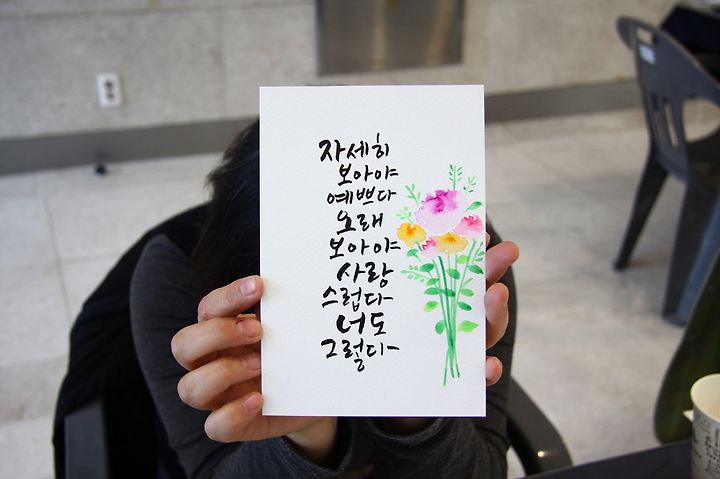 자세히
보아야
예쁘다
오래
보아야
사랑
스럽다
너도
그렇다